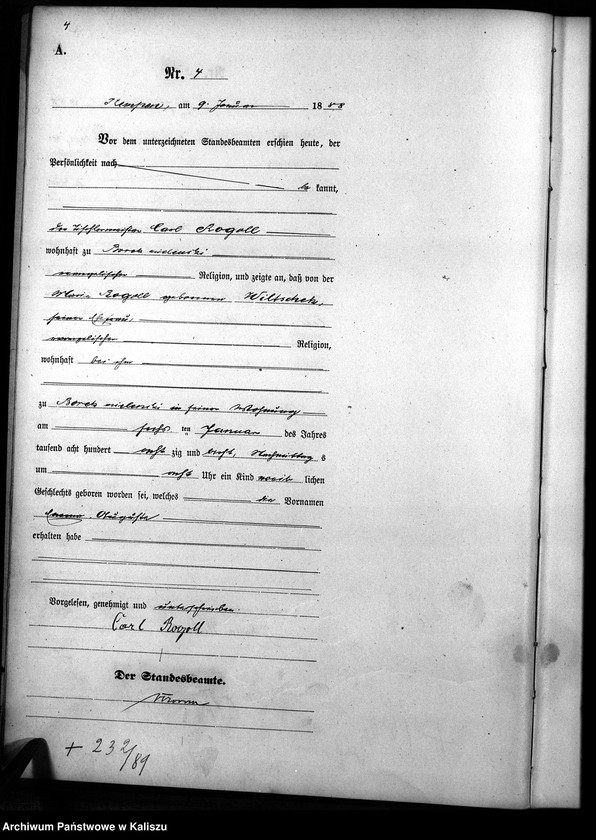 4
A.
Nr. 4
Kempen, am 9. Januar 1888
Vor dem unterzeichneten Standesbeamten erschien heute, der
Persönlichkeit nach
be kannt,
der Tischlermeister Carl Rogoll
wohnhaft zu Borek mielenski
evangelischer Religion, und zeigte an, daß von der
Maria Rogoll geborenen Wiltschek,
seiner Ehefrau,
evangelischer Religion,
wohnhaft bei ihm
zu Borek mielenski in seiner Wohnung
am sechs ten Januar des Jahres
tausend acht hundert acht zig und acht, Nachmittag s
um acht Uhr ein Kind weib lichen
Geschlechts geboren worden sei, welches die Vornamen
Auguste
erhalten habe
Vorgelesen, genehmigt und unterschrieben.
Carl Rogoll
Der Standesbeamte.
+ 232/89
Archiwum Państwowe w Kaliszu